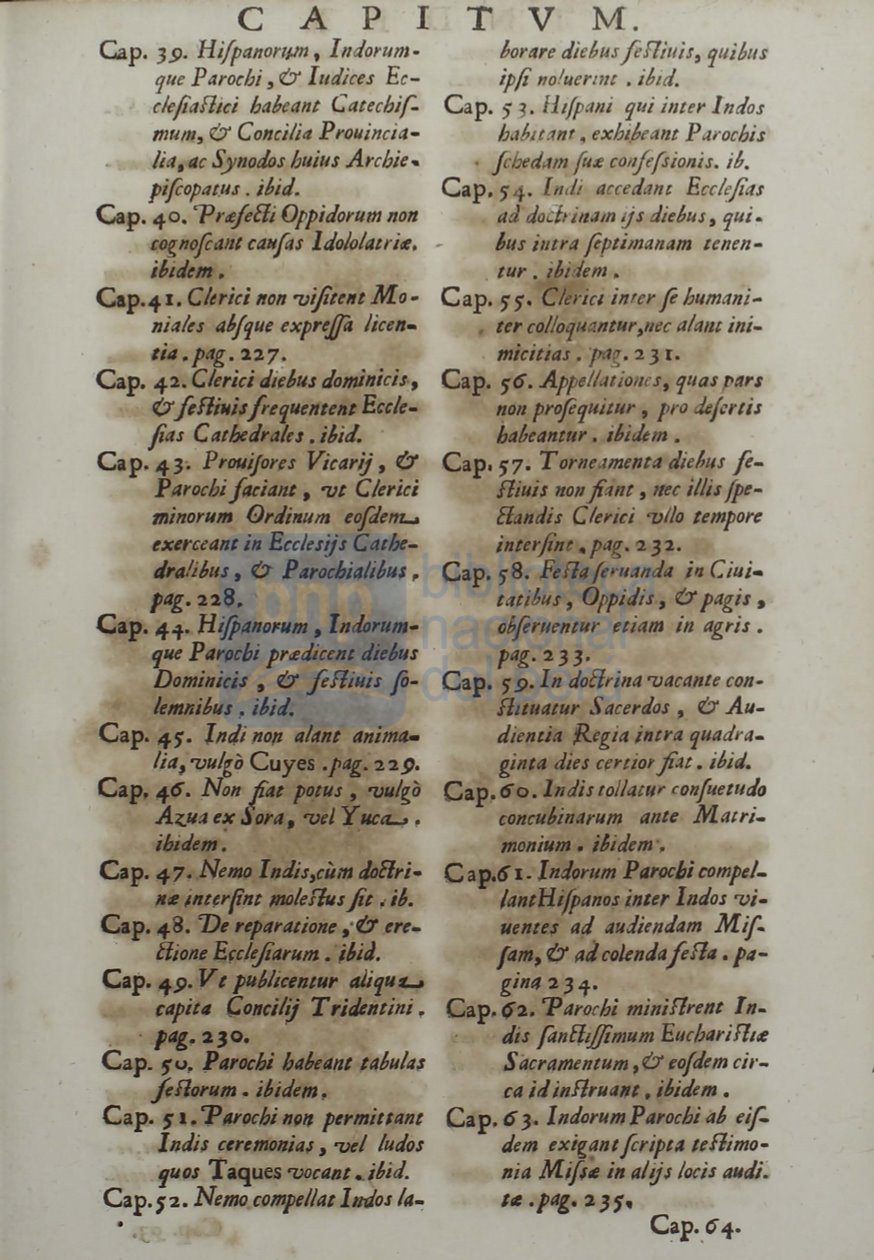 CAPITVM.
Cap. 39. Hiſpanorum, Indorum-
que Parochi, & Iudices Ec-
cleſiaſtici habeant Catechiſ-
mum, & Concilia Prouincia-
lia, ac Synodos huius Archie-
piſcopatus. ibid.
Cap. 40. Præfecti Oppidorum non
cognoſcant cauſas Idololatriæ.
ibidem.
Cap. 41. Clerici non viſitent Mo-
niales abſque expreſſa licen-
tia. pag. 227.
Cap. 42. Clerici diebus dominicis,
& feſtiuis frequentent Eccle-
ſias Cathedrales. ibid.
Cap. 43. Prouiſores Vicarij, &
Parochi faciant, vt Clerici
minorum Ordinum eoſdem
exerceant in Eccleſijs Cathe-
dralibus, & Parochialibus,
pag. 228.
Cap. 44. Hiſpanorum, Indorum-
que Parochi prædicent diebus
Dominicis, & feſtiuis ſo-
lemnibus. ibid.
Cap. 45. Indi non alant anima-
lia, vulgò Cuyes. pag. 229.
Cap. 46. Non fiat potus, vulgò
Azua ex Sora, vel Yuca.
ibidem.
Cap. 47. Nemo Indis, cùm doctri-
næ interſint moleſtus ſit. ib.
Cap. 48. De reparatione, & ere-
ctione Eccleſiarum. ibid.
Cap. 49. Vt publicentur aliqua
capita Concilij Tridentini.
pag. 230.
Cap. 50. Parochi habeant tabulas
feſtorum. ibidem.
Cap. 51. Parochi non permittant
Indis ceremonias, vel ludos
quos Taques vocant. ibid.
Cap. 52. Nemo compellat Indos la-
borare diebus feſtiuis, quibus
ipſi noluerint. ibid.
Cap. 53. Hiſpani qui inter Indos
habitant, exhibeant Parochis
ſchedam ſuæ confeſsionis. ib.
Cap. 54. Indi accedant Eccleſias
ad doctrinam ijs diebus, qui-
bus intra ſeptimanam tenen-
tur. ibidem.
Cap. 55. Clerici inter ſe humani-
ter colloquantur, nec alant ini-
micitias. pag. 231.
Cap. 56. Appellationes, quas pars
non proſequitur, pro deſertis
habeantur. ibidem.
Cap. 57. Torneamenta diebus fe-
ſtiuis non fiant, nec illis ſpe-
ctandis Clerici vllo tempore
interſint, pag. 232.
Cap. 58. Feſta ſeruanda in Ciui-
tatibus, Oppidis, & pagis,
obſeruentur etiam in agris.
pag. 233.
Cap. 59. In doctrina vacante con-
ſtituatur Sacerdos, & Au-
dientia Regia intra quadra-
ginta dies certior fiat. ibid.
Cap. 60. Indis tollatur conſuetudo
concubinarum ante Matri-
monium. ibidem.
Cap. 61. Indorum Parochi compel-
lant Hiſpanos inter Indos vi-
uentes ad audiendam Miſ-
ſam, & ad colenda feſta. pa-
gina 234.
Cap. 62. Parochi miniſtrent In-
dis ſanctiſſimum Euchariſtiæ
Sacramentum, & eoſdem cir-
ca id inſtruant, ibidem.
Cap. 63. Indorum Parochi ab eiſ-
dem exigant ſcripta teſtimo-
nia Miſsæ in alijs locis audi-
tæ. pag. 235.
Cap. 64.